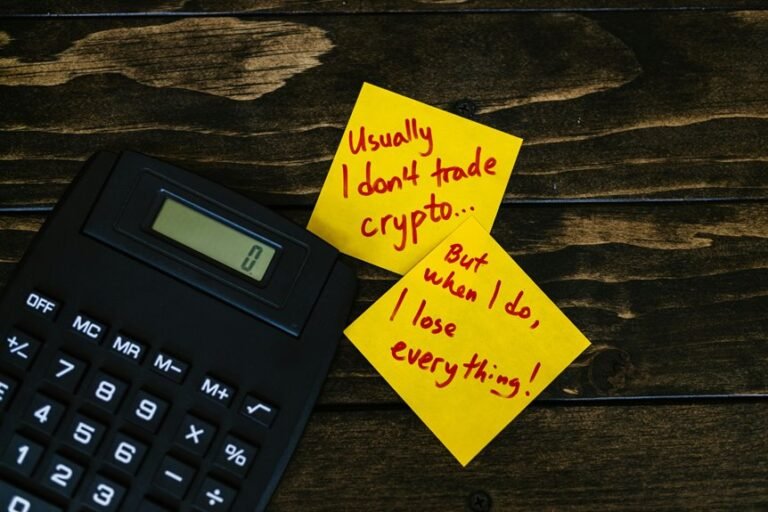 Usually
I don't trade
crypto...
But
when I do,
I lose
everything!
0
OFF MC MR M− M+ √
+/− 7 8 9 × %
4 5 6 − ÷
1 2 3
0